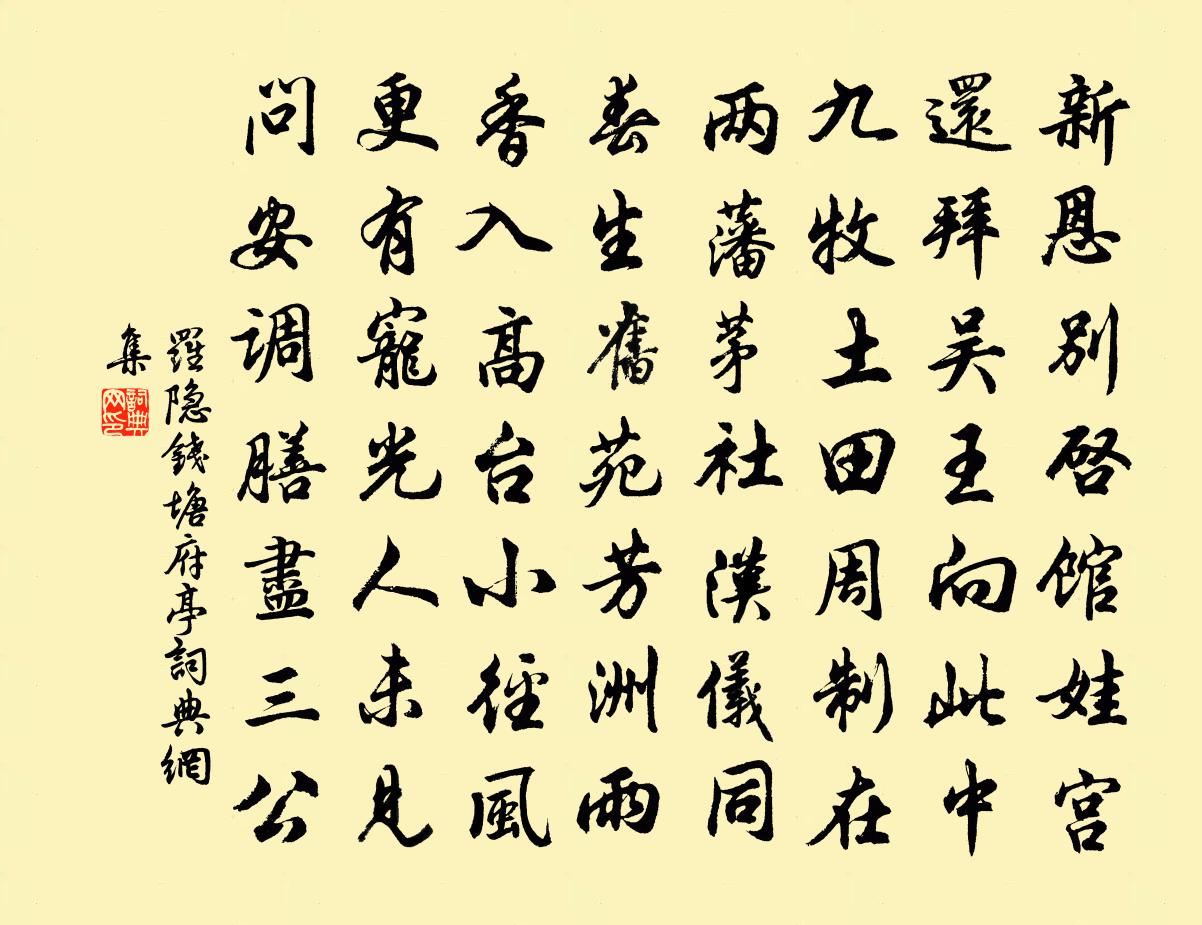 新恩别启馆娃宫
還拜吴王向此中
九牧土田周制在
两藩茅社漢儀同
春生舊苑芳洲雨
香入高台小徑風
更有寵光人未見
問安调膳盡三公
羅隐錢塘府亭詞典網
集
詞典网印